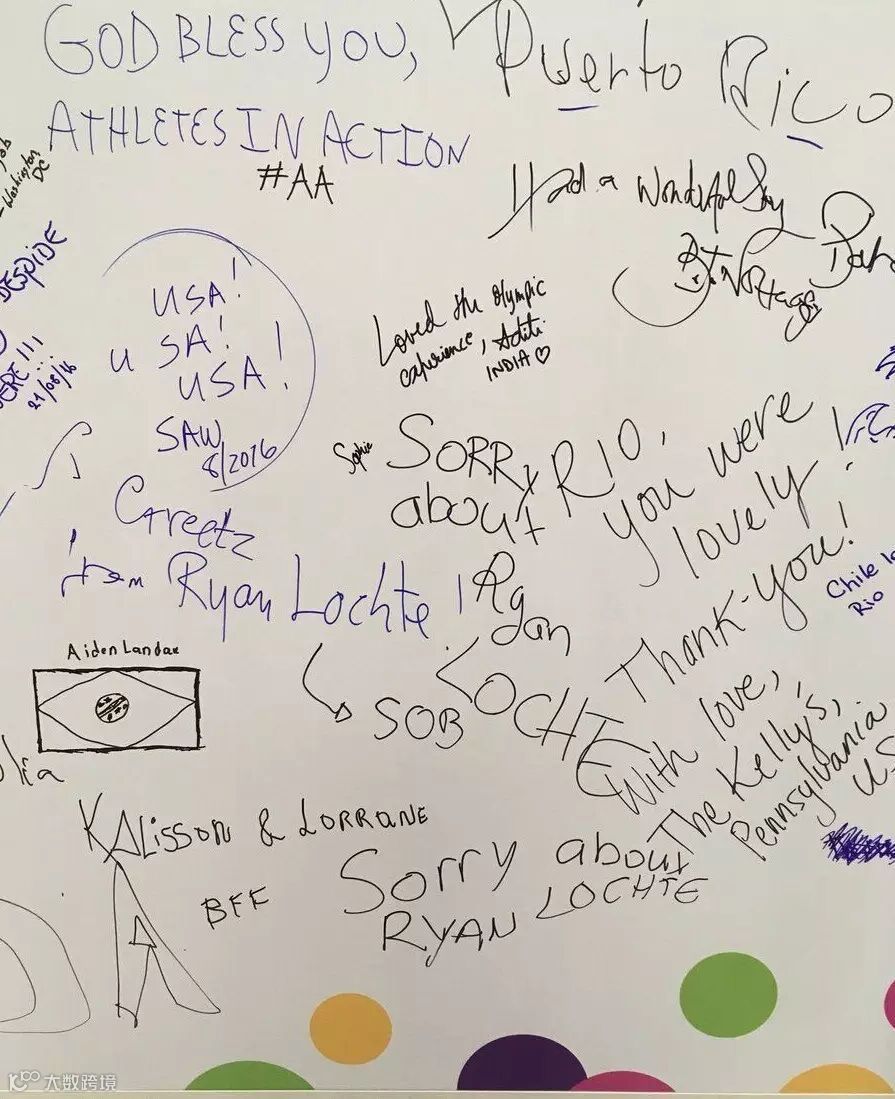 GOD BLESS YOU,
ATHLETES IN ACTION
#AA
Puerto Rico
Washington
DC
Had a Wonderful
DESPIDE
HERE!!!
21/08/16
USA!
USA!
USA!
SAW
8/2016
Loved the Olympic
experience, Aditi
INDIA
Sophie
SORRY
about
RIO,
you were
lovely!
Thank-you!
With love,
The Kelly's,
Pennsylvania
Chile
Rio
Greetz
from Ryan Lochte!
Ryan
LOCHTE
SOB
Aiden Landau
KALISSON & LORRANE
BFF
Sorry about
RYAN LOCHTE
大数跨境